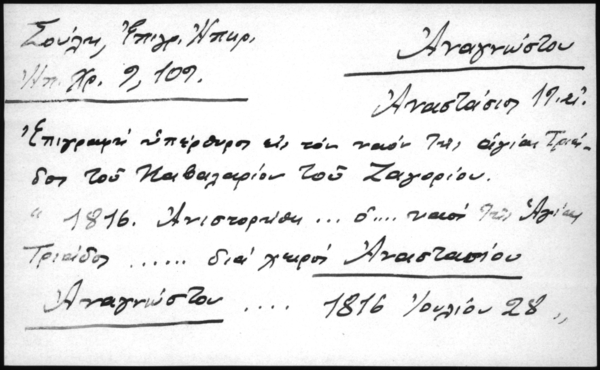 Σούλη, Ἐπιγρ. Ἠπειρ.
Ἠπ. Χρ. 9, 109.
Ἀναγνώστου
Ἀναστάσιος 19. αἰ.
Ἐπιγραφή ὑπέρθυρος εἰς τόν ναόν τῆς ἁγίας Τριά-
δος τοῦ Καβαλαρίου τοῦ Ζαγορίου.
" 1816. Ἀνιστορήθη ... ὁ .... ναός τῆς Ἁγίας
Τριάδος ...... διά χειρός Ἀναστασίου
Ἀναγνώστου .... 1816 Ἰουλίου 28 "